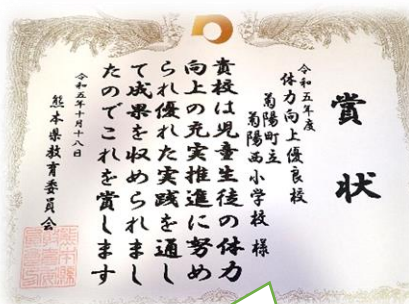 賞状
令和五年度
体力向上優良校
菊陽町立
菊陽西小学校 様
貴校は児童生徒の体力
向上の充実推進に努め
られ優れた実践を通し
て成果を収められまし
たのでこれを賞します
令和五年十月十八日
熊本県教育委員会